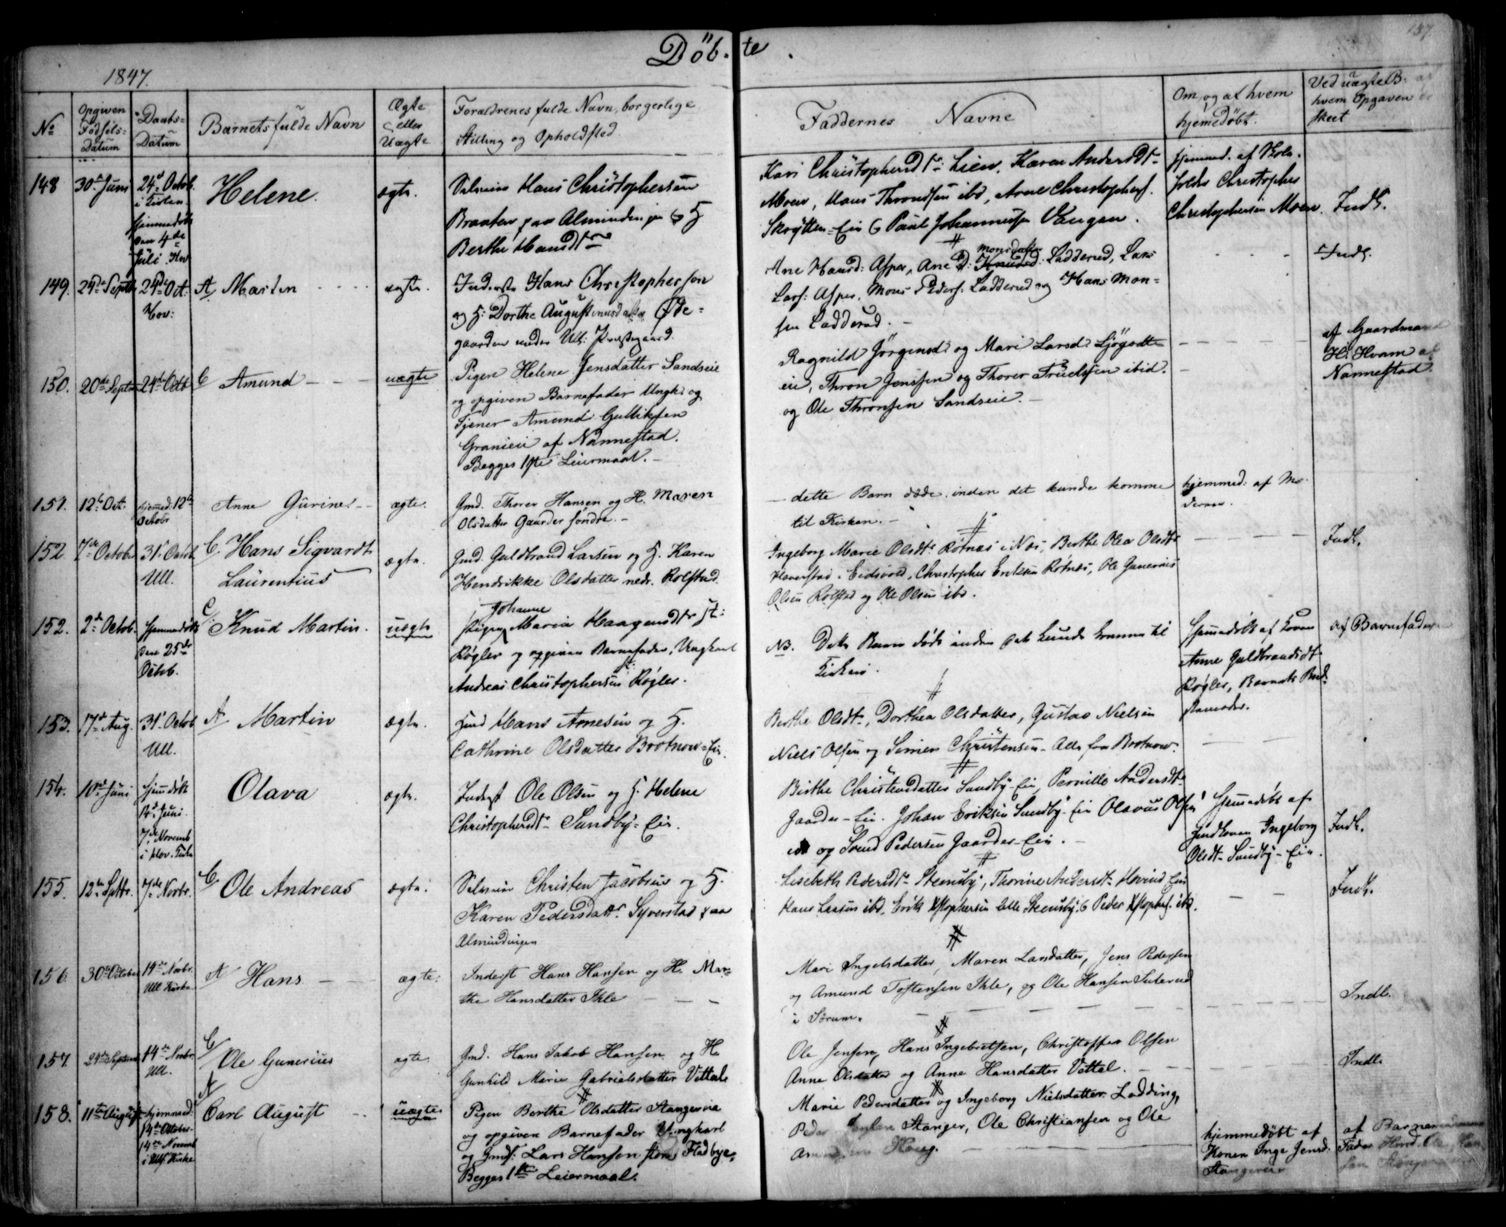 Döb- te.
157.
1847.
No
Opgiven Födsels-Datum
Daabs-Datum
Barnets fulde Navn
Ægte eller Uægte
Forældrenes fulde Navn, borgerlige Stilling og Opholdsted
Faddernes Navne
Om, og af hvem hjemmedöbt.
Ved uægte B. af hvem Opgaven er skeet
148 30te Juni 24d Octob. Helene. ægte.
Hans Christophersen
Berthe Hansdtr
Kari Christophersdtr Lien, Karen Andersdtr
Moen, Hans Throndsen ibd, Arne Christophers.
Skrytten-Eie & Paul Johannessen Vangen.
hjemmed. af Skole-
holder Christopher
Christophersen Moen.
Indl.
149. 24de Septbr 24de Oct. A Martin ægte.
Inderste Hans Christophersen
og H. Dorthe Augustinusdatter Öde-
gaarden under Ull. Præstegaard.
Ane Hansd: Asper, Ane Monsdatter Ladderud, Lars
Lars: Asper, Mons Peders. Ladderud og Hans Mon-
sen Ladderud.
Indl.
150. 20de Septbr 24d Octb C Amund uægte
Pigen Helene Jensdatter Sandseie
og opgiven Barnefader Ungk: og
Tjener Amund Gulliksen
Granieie af Nannestad.
Begges 1ste Leiermaal.
Ragnild Jörgensd: og Mari Larsd: Ljögodt-
eie, Thron Jensen og Thorer Truelsen ibid.
og Ole Thronsen Sandseie.
af Gaardmand
H. Hvam af
Nannestad
151. 12te Oct. hjemmed 12te Octobr Anne Gurine ægte.
Gmd. Thorer Hansen og H. Maren
Olsdatter Gaarder söndre.
dette Barn döde inden det kunde komme
til Kirken.
hjemmed. af Mo-
deren.
152 7de Octob. 31t Octob. Ull. C. Hans Sigvardt
Laurentius ægte.
Gmd Guldbrand Larsen og H. Karen
Hendrikke Olsdatter nedr. Rolstad.
Ingeborg Marie Olsdtr Rotnæs i Næs, Berthe Olea Olsdtr
Haverstad i Eidsvold, Christopher Eriksen Rotnæs, Ole Gunerius
Olsen Rolstad og Ole Olsen ibd.
Indl.
152. 2de Octob. Hjemmedöbt den 25de Octob. C/ Knud Martin. uægte
Pigen Johanne Maria Haagensdtr
Rögler og opgiven Barnefader, Ungkarl
Andreas Christophersen Rögler.
NB. Dette Barn döde inden det kunde komme til
Kirken.
Hjemmedöbt af Konen
Anne Guldbrandsdtr
Rögler, Barnets Bed-
stemoder.
af Barnefader
153. 7de Aug. 31t Octob. Ull. A Martin ægte.
Gmd Hans Arnesen og H.
Cathrine Olsdatter Brotnow-Eie.
Berthe Olsdtr, Dorthea Olsdatter, Gustav Nielsen
Niels Olsen og Simen Christensen - Alle fra Brotnow-
154. 10de Juni Hjemdöbt 12d Juni. 7de Novemb i Hov. Kirke Olava ægte.
Inderst Ole Olsen og H. Helene
Christophersdtr Sundby-Eie.
Birthe Christensdatter Sundby-Eie, Pernille Andersdtr
Gaarder-Eie. Johan Eriksen Sundby-Eie Olavus Olsen
og Svend Pedersen Gaarder-Eie.
Hjemmedöbt af
Jordkonen Ingeborg
Olsdtr Sundby-Eie.
Indl.
155. 12te Septbr. 7de Novbr. C Ole Andreas ægte.
Selveier Christen Jacobsen og H.
Karen Pedersdattr Syverstad paa
Almindingen
Lisebeth Pedersdtr Steensby, Thorine Andersdtr Hovind Eie
Hans Larsen ibd, Erik Xstophersen lille Steensby & Peder Xstophs. ibd.
Indl.
156. 30te October 14de Novbr. Ull Kirke A Hans ægte:
Inderst Hans Hansen og H. Mar-
the Hansdatter Ihle
Mari Ingelsdatter, Maren Larsdatter, Jens Pedersen
og Amund Tostensen Ihle, og Ole Hansen
i Sörum.
Indl.
157. 24de September 14de Novbr. Ull. C/ Ole Gunerius ægte
Gmd. Hans Jakob Hansen og H
Gunhild Marie Gabrielsdatter Vittal
Ole Jensen, Hans Ingebretsen, Christoffer Olsen
Anne Olsdatter og Anne Hansdatter Vittal.
Indl.
158. 11te August hjemmed. 14de October 14de Novemb i Ull. Kirke A Carl August uægte
Pigen Berthe Olsdatter Stangereie
og opgiven Barnefader Ungkarl
og Gmds. Lars Hansen store Fladbye,
Begges 1ste Leiermaal.
Marie Pedersdatter og Ingeborg Nielsdatter Ladding,
Peder Stanger, Ole Christiansen og Ole
Haug.
hjemmedöbt af
Konen Inge Jensd.
Stangereie
af Barnemoderens
Fader